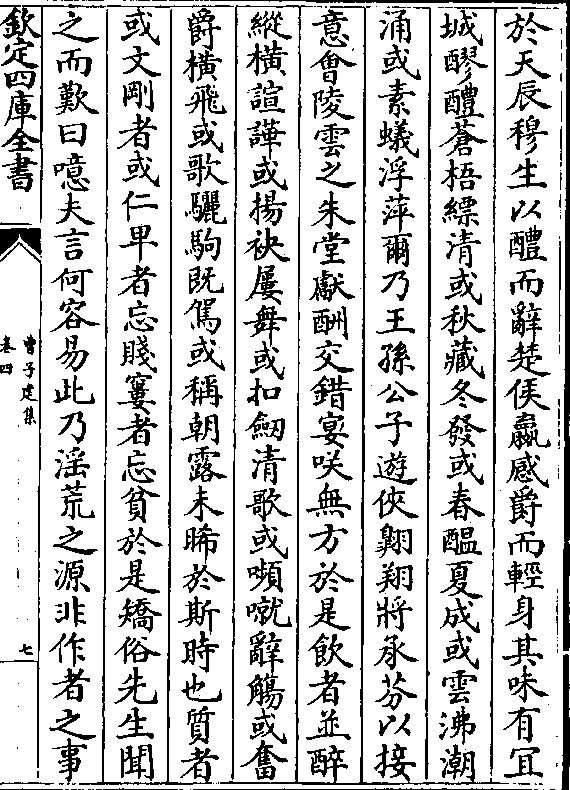 於天辰穆生以醴而辭楚侯嬴感爵而輕身其味有冝
城醪醴蒼梧縹清或秋藏冬發或春醖夏成或雲沸潮
涌或素蟻浮萍爾乃王孫公子遊俠翺翔將承芬以接
意㑹陵雲之朱堂獻酬交錯宴咲無方於是飲者並醉
縱横諠譁或揚袂屢舞或扣劒清歌或嚬㗤辭觴或奮
爵横飛或歌驪駒既駕或稱朝露未晞於斯時也質者
或文剛者或仁卑者忘賤窶者忘貧於是矯俗先生聞
之而歎曰噫夫言何容易此乃淫荒之源非作者之事
欽定四庫全書
曹子建集
卷四
七